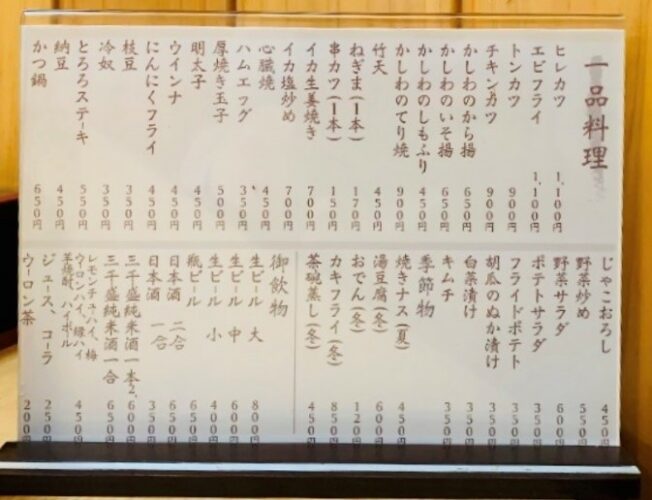 一品料理
ヒレカツ 1,100円
エビフライ 1,100円
トンカツ 900円
チキンカツ 900円
かしわのから揚 650円
かしわのいそ揚 650円
かしわのしもふり 450円
かしわのてり焼 900円
竹天 450円
ねぎま(1本) 170円
串カツ(1本) 150円
イカ生姜焼き 700円
イカ塩炒め 700円
心臓焼 450円
ハムエッグ 350円
厚焼き玉子 500円
明太子 450円
ウインナ 450円
にんにくフライ 450円
枝豆 350円
冷奴 350円
とろろステーキ 550円
納豆 450円
かつ鍋 650円
じゃこおろし 450円
野菜炒め 550円
野菜サラダ 600円
ポテトサラダ 350円
フライドポテト 350円
胡瓜のぬか漬け 350円
白菜漬け 350円
キムチ 350円
季節物
焼きナス(夏) 450円
湯豆腐(冬) 600円
おでん(冬) 120円
カキフライ(冬) 850円
茶碗蒸し(冬) 450円
御飲物
生ビール 大 800円
生ビール 中 600円
生ビール 小 400円
瓶ビール 650円
日本酒 二合 650円
日本酒 一合 350円
三千盛純米酒一本 2,600円
三千盛純米酒一合 650円
レモンチューハイ、梅
ウーロンハイ、緑ハイ
芋焼酎、ハイボール 450円
ジュース、コーラ 250円
ウーロン茶 200円